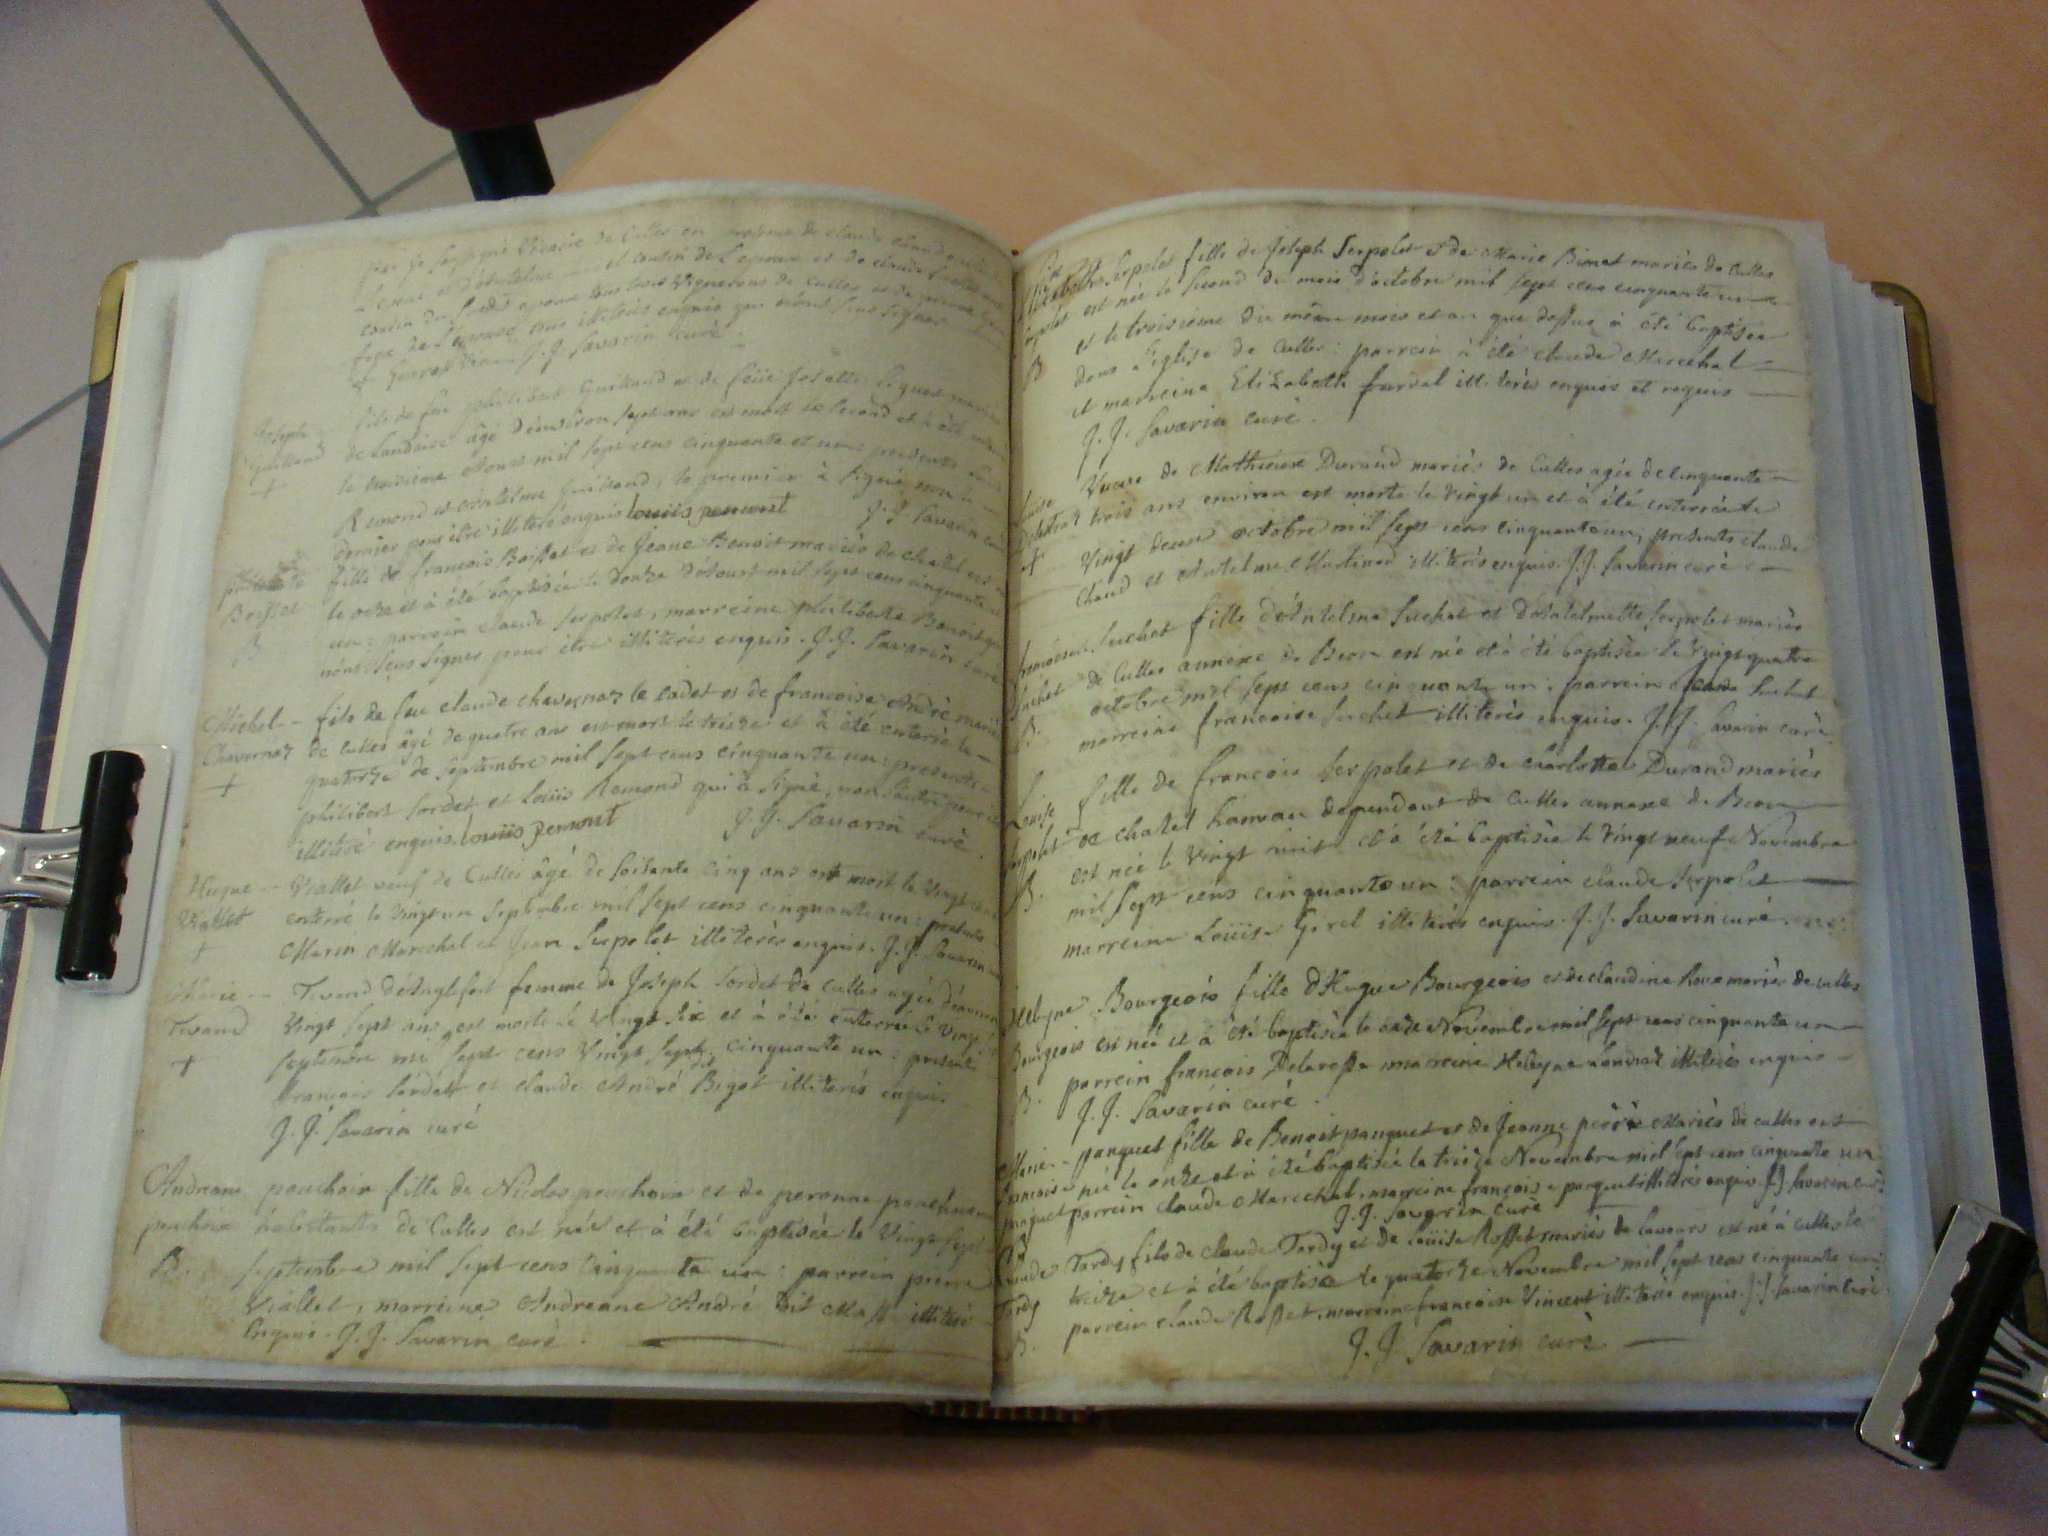 par je soussigné Vicaire de Culles en presence de claude
cousin de Lepoux et de claude
cousin du susdit epoux tous trois vignerons de Culles et de
de L'epouse tous illiterés enquis qui n'ont sceu signer
J. J. Savarin curé
fils de feu philibert Guilland et de
Joseph
Guilland de Landaise âgé d'environ sept ans est mort le second et à été
+ le troisieme Aoust mil sept cens cinquante et un : presents
Remond et Antelme Guilland, le premier à signé non le
dernier pour être illiteré enquis louiis remont J. J. Savarin
philiberte fille de francois Boisset et de Jeane Benoit mariés de chatel est
Boisset le onze et à été baptisée le douze d'Aoust mil sept cens cinquante et
B un : parrein claude Serpolet, marreine philiberte Benoit qui
n'ont sceu signer pour être illiterés enquis. J. J. Savarin curé
Michel - fils de feu claude chavernaz le cadet et de francoise André mariés
Chavernaz de Culles âgé de quatre ans est mort le treize et à été enterré le
+ quatorze de septembre mil sept cens cinquante un : presents
philibert sordet et Loüis Remond qui à signé, non l'autre pour
illiteré enquis. louiis remont J. J. Savarin curé.
Hugue - Viallet veuf de Culles âgé de soisante cinq ans est mort le vingt
Viallet enterré le vingt un septembre mil sept cens cinquante un : presents
+ Marin Marechal et Jean Serpolet illiterés enquis. J. J. Savarin
Marie - Tivand d'Anglefort femme de Joseph Sordet de Culles agée d'environ
Tivand vingt sept ans est morte le vingt six et à été enterrée le vingt
+ septembre mil sept cens vingt sept cinquante un : present
francois Sordet et claude André Bigot illiterés enquis
J. J. Savarin curé
Andreane pouchoin fille de Nicolas pouchoin et de peronne
pouchoin habitants de Culles est née et à été baptisée le vingt sept
B. septembre mil sept cens cinquanta un : parrein pierre
Viallet, marreine Andreane André dit Mass illiteré
enquis. J. J. Savarin curé.
Elizabeth Serpolet fille de Joseph Serpolet & de Marie Binet mariés de Culles
Serpolet est née le second du mois d'octobre mil sept cens cinquante un
B et le troisieme du même mois et an que dessus à été baptisée
dans l'eglise de Culles : parrein à été claude Marechal
et marreine Elizabeth farval illiterés enquis et requis
J. J. Savarin curé.
Louise Veuve de Mathieu Durand mariés de Culles agée de cinquante
trois ans environ est morte le vingt un et à été enterrée le
+ vingt deux octobre mil sept cens cinquante un, presents claude
chaud et Antelme Martinod illiterés enquis. J. J. Savarin curé
francoise Suchet fille d'Antelme Suchet et d'Antelmette Serpolet mariés
Suchet de Culles annexe de Beon est née et à été baptisée le vingt quatre
B. octobre mil sept cens cinquante un : parrein claude Suchet
marreine francoise Suchet illiterés enquis. J. J. Savarin curé
Louise fille de francois Serpolet et de charlotte Durand mariés
Serpolet de chatel hameau dependant de Culles annexe de Beon
B. est née le vingt huit et à été baptisée le vingt neuf Novembre
mil sept cens cinquante un : parrein claude Serpolet
marreine Loüise Girel illiterés enquis. J. J. Savarin curé.
Helleyne Bourgeois fille d'Hugue Bourgeois et de claudine Roux mariés de Culles
Bourgeois est née et à été baptisée le onze Novembre mil sept cens cinquante un
B. parrein francois Delarossa marreine Heleyne illiterés enquis
J. J. Savarin curé.
Marie - panquet fille de Benoit panquet et de Jeanne mariés de Culles est
francoise née le onze et à été baptisée le treize Novembre mil sept cens cinquante un
panquet parrein claude Marechal, marreine francoise panquet illiterés enquis J. J. Savarin curé
B J. J. Savarin curé
claude Tardy fils de claude Tardy et de Loüise Rosset mariés de Lavours est né à Culles le
Tardy treize et à été baptisé le quatorze Novembre mil sept cens cinquante un
B. parrein claude Rosset, marreine francoise Vincent illiterés enquis. J. J. Savarin curé.
J. J. Savarin curé